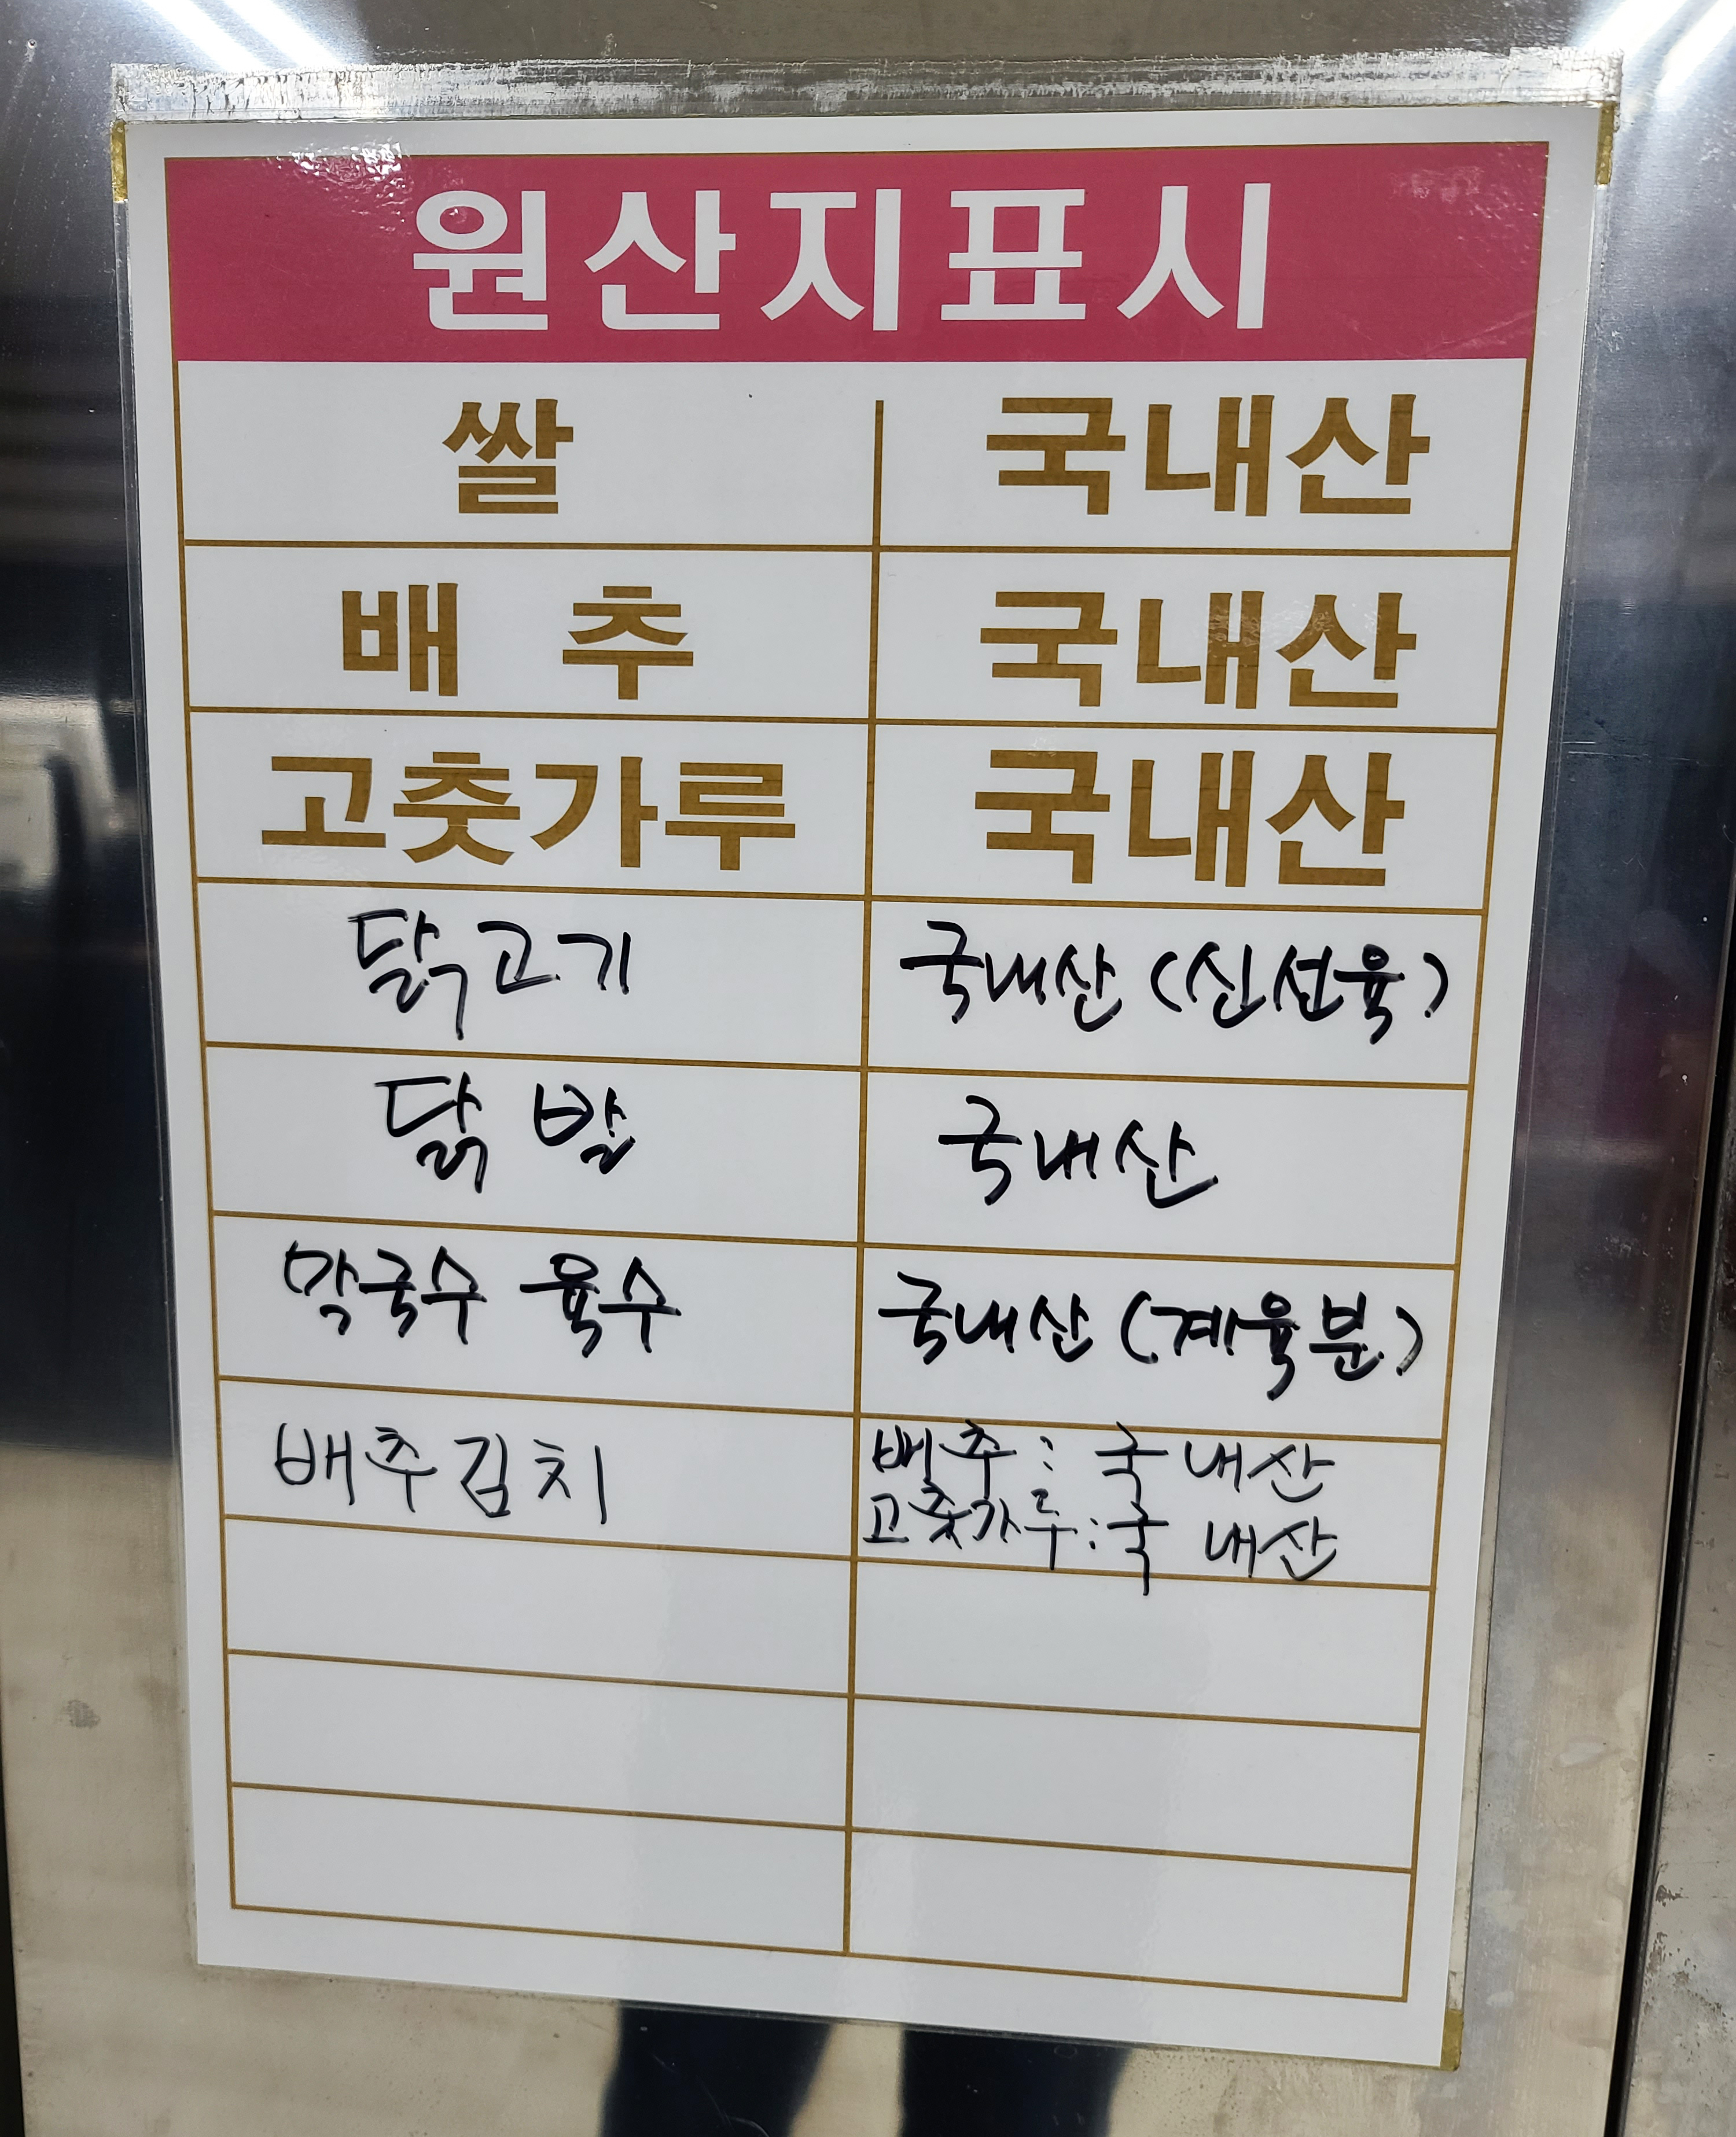 원산지표시
쌀 국내산
배 추 국내산
고춧가루 국내산
닭고기 국내산 (신선육)
닭 발 국내산
막국수 육수 국내산 (계육분)
배추김치 배추 : 국내산
고춧가루 : 국내산